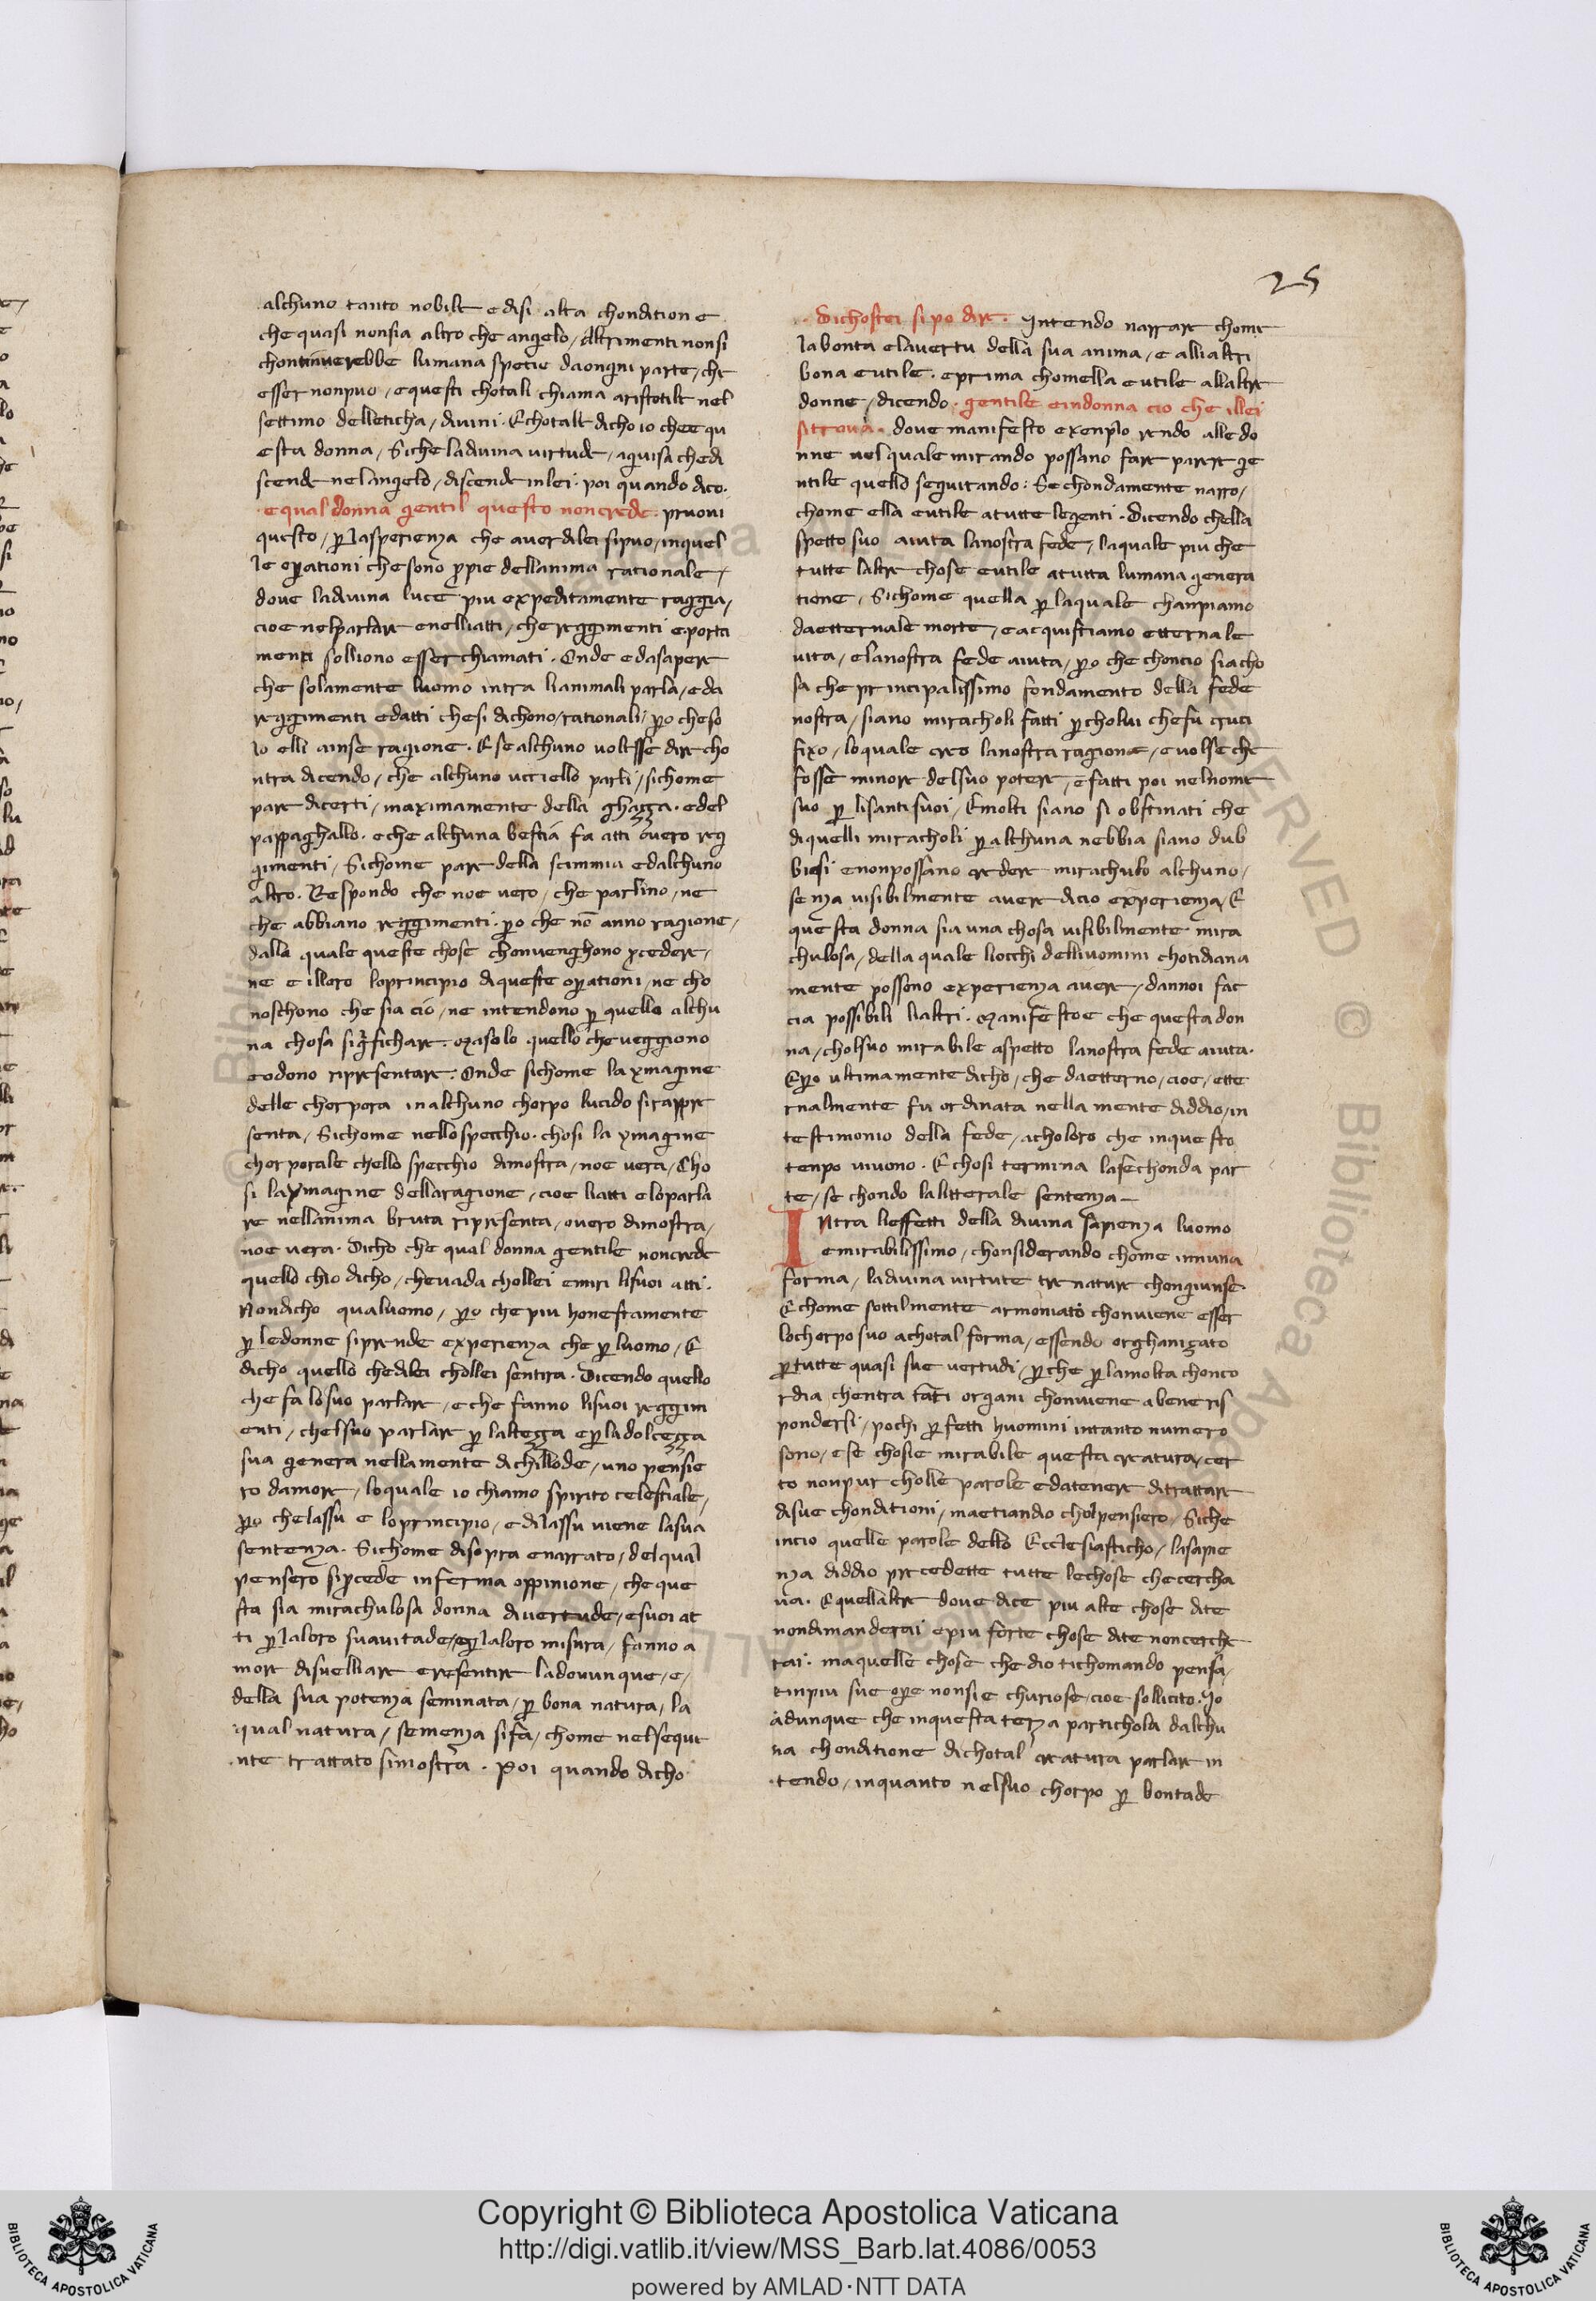 25
alchuno tanto nobile e disi alta chonditione
che quasi nonsia altro che angelo / Altrimenti nonsi
chontinuerebbe lumana spetie daongni parte / che
esser nonpuo / equesti chotali chiama aristotile nel
settimo delleticha / divini. Echotale dicho io chee qu
esta donna / Siche ladivina virtude / aguisa chedi
scende nelangielo / discende inlei. poi quando dico.
equal donna gentil questo noncrede. pruovi
questo / p lasperienza che averdilei sipuo / inquel
le opationi che sono ppie dellanima rationale /
dove ladivina luce piu expeditamente raggia /
cioe nelparlare enelliatti / che reggimenti e porta
menti solliono esser chiamati. Onde edasapere
che solamente luomo intra lianimali parla / eda
reggimenti edatti chesi dichono / rationali / po cheso
lo elli ainse ragione. Ese alchuno volesse dire cho
ntra dicendo / che alchuno uccello parli / sichome
pare dicerti / maximamente della ghazza. edel
pappaghallo. e che alchuna bestia fa atti overo reg
gimenti / Sichome pare della scimmia edalchuno
altro. Respondo che noe vero / che parlino / ne
che abbiano reggimenti. po che nō anno ragione /
dalla quale queste chose chonvenghono pcedere /
ne e illoro loprincipio diqueste opationi / ne cho
noschono che sia cio / ne intendono p quello alchu
na chosa significhare. Masolo quello cheveggiono
eodono ripresentare. Onde sichome la ymagine
delle chorpora inalchuno chorpo lucido sirappre
senta / Sichome nellospecchio. chosi la ymagine
chorporale chello specchio dimostra / noe vera / Cho
si laymagine dellaragione / cioe liatti eloparla
re nellanima bruta ripresenta / overo dimostra /
noe vera. Dicho che qual donna gentile noncrede
quello chio dicho / chevada chollei emiri lisuoi atti.
Nondicho qualuomo / po che piu honestamente
p ledonne siprende experienza che p luomo / E
dicho quello chedilei chollei sentira. Dicendo quello
che fa losuo parlare / e che fanno lisuoi reggim
enti / chelsuo parlare p laltezza e p ladolcezza
sua genera nellamente dichillode / uno pensie
ro damore / loquale io chiamo spirito celestiale /
po chelassu e loprincipio / e dilassu viene lasua
sentenza. Sichome disopra enarrato / delqual
pensero sipcede inferma oppinione / che que
sta sia mirachulosa donna divertude / esuoi at
ti p laloro suavitade / e p laloro misura / fanno a
more disvelliare eresentire ladovunque / e /
della sua potenza seminata / p bona natura / la
qual natura / semenza sifa / chome nelsegue
nte trattato simostra. Poi quando dicho
Dichostei si po dire. Intendo narrare chome
labonta elavertu della sua anima / e alliatri
bona eutile. eprima chomella eutile allaltre
donne / dicendo. gentile eindonna cio che illei
sitrova. dove manifesto exenplo rendo alledo
nne nelquale mirando possano fare parere ge
ntile quello seguitando. Sechondamente narro /
chome ella eutile atutte legenti. Dicendo chella
spetto suo aiuta lanostra fede / laquale piu che
tutte laltre chose eutile atutta lumana genera
tione / Sichome quella p laquale chanpiamo
daetternale morte / e acquistiamo etternale
vita / elanostra fede aiuta / po che choncio siacho
sa che principalissimo fondamento della fede
nostra / siano miracholi fatti pcholui chefu cruci
fixo / loquale creo lanostra ragione / evolse che
fosse minore delsuo potere / efatti poi nelnome
suo p lisanti suoi / Emolti siano si obstinati che
diquelli miracholi p alchuna nebbia siano dub
biosi enonpossano credere mirachulo alchuno /
senza visibilmente avere dicio experienza / E
questa donna sia una chosa visibilmente mira
chulosa / della quale liocchi delliuomini chotidiana
mente possono experienza avere / dannoi fac
cia possibili lialtri. Manifestoe che questa don
na / cholsuo mirabile aspetto lanostra fede aiuta.
Epo ultimamente dicho / che daetterno / cioe / ette
rnalmente fu ordinata nella mente diddio / in
testimonio della fede / acholoro che inquesto
tenpo vivono. Echosi termina lasechonda par
te / sechondo lalitterale sentenza —
Intra lieffetti della divina sapienza luomo
emirabilissimo / chonsiderando chome innuna
forma / ladivina virtute tre nature chongiunse.
Echome sottilmente armoniato chonviene esser
lochorpo suo achotal forma / essendo orghanizato
ptutte quasi sue vertudi / pche p lamolta chonco
rdia chentra tāti organi chonviene abeneris
pondersi / pochi pfetti huomini intanto numero
sono / e se chosie mirabile questa creatura / cer
to nonpur cholle parole edatenere ditrattare
disue chonditioni / maetiandio cholpensiero / Siche
incio quelle parole dello Ecclesiasticho / lasapie
nza diddio precedette tutte lechose checercha
va. E quellaltre dove dice piu alte chose dite
nondimanderai epiu forte chose dite noncerche
rai. maquelle chose che dio tichomando pensa /
einpiu sue ope nonsie churiose / cioe sollicito. Io
adunque che inquesta terza partichola dalchu
na chonditione dichotal creatura parlare in
tendo / inquanto nelsuo chorpo p bontade
Copyright © Biblioteca Apostolica Vaticana
http://digi.vatlib.it/view/MSS_Barb.lat.4086/0053
powered by AMLAD·NTT DATA
BIBLIOTECA APOSTOLICA VATICANA
BIBLIOTECA APOSTOLICA VATICANA